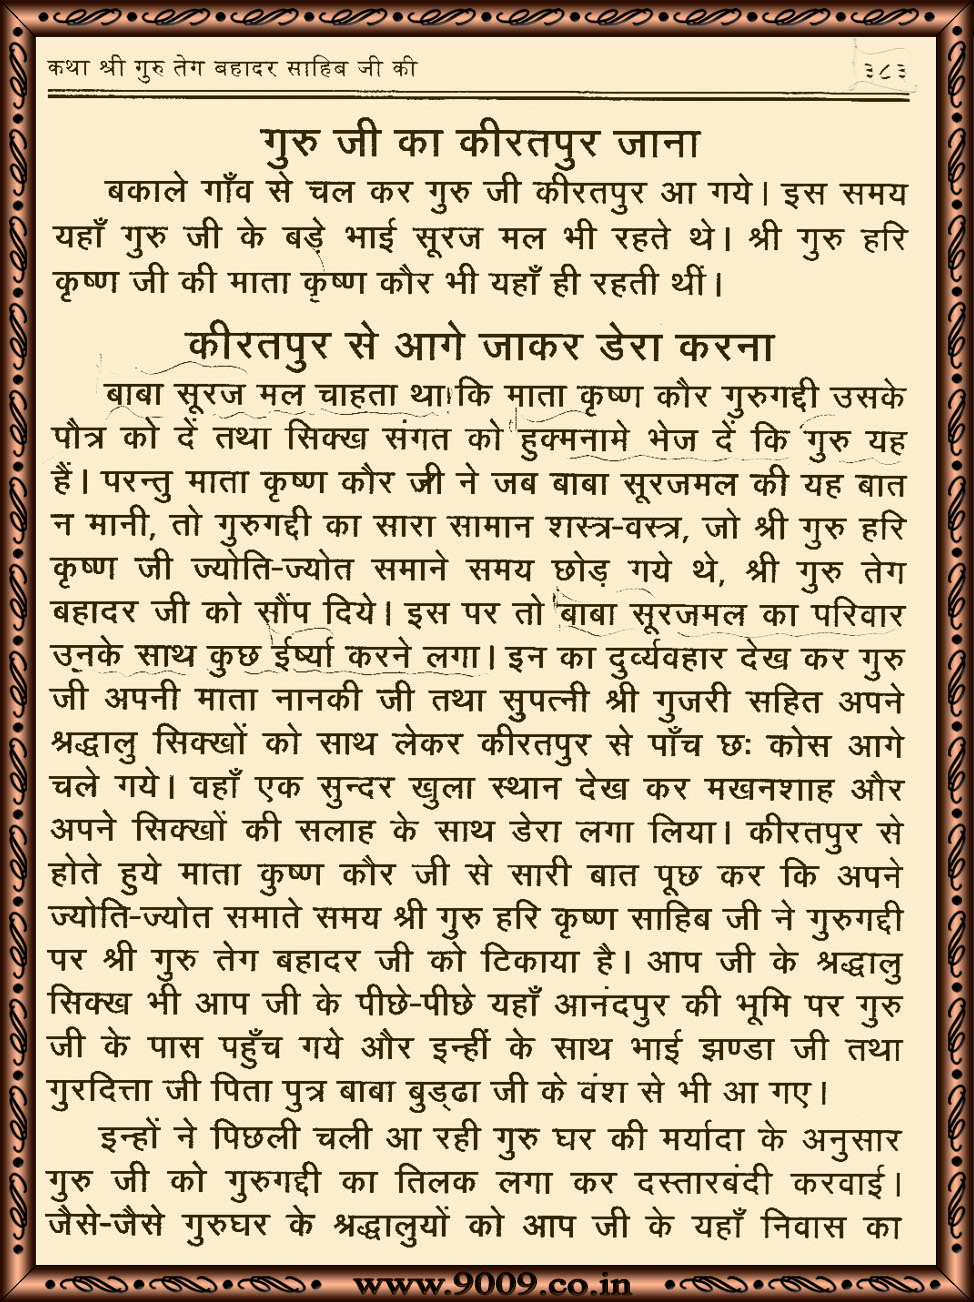 कथा श्री गुरु तेग बहादर साहिब जी की ३८३
गुरु जी का कीरतपुर जाना
बकाले गाँव से चल कर गुरु जी कीरतपुर आ गये। इस समय
यहाँ गुरु जी के बड़े भाई सूरज मल भी रहते थे। श्री गुरु हरि
कृष्ण जी की माता कृष्ण कौर भी यहाँ ही रहती थीं।
कीरतपुर से आगे जाकर डेरा करना
बाबा सूरज मल चाहता था कि माता कृष्ण कौर गुरुगद्दी उसके
पौत्र को दें तथा सिक्ख संगत को हुक्मनामे भेज दें कि गुरु यह
हैं। परन्तु माता कृष्ण कौर जी ने जब बाबा सूरजमल की यह बात
न मानी, तो गुरुगद्दी का सारा सामान शस्त्र-वस्त्र, जो श्री गुरु हरि
कृष्ण जी ज्योति-ज्योत समाने समय छोड़ गये थे, श्री गुरु तेग
बहादर जी को सौंप दिये। इस पर तो बाबा सूरजमल का परिवार
उनके साथ कुछ ईर्ष्या करने लगा। इन का दुर्व्यवहार देख कर गुरु
जी अपनी माता नानकी जी तथा सुपत्नी श्री गुजरी सहित अपने
श्रद्धालु सिक्खों को साथ लेकर कीरतपुर से पाँच छः कोस आगे
चले गये। वहाँ एक सुन्दर खुला स्थान देख कर मखनशाह और
अपने सिक्खों की सलाह के साथ डेरा लगा लिया। कीरतपुर से
होते हुये माता कुष्ण कौर जी से सारी बात पूछ कर कि अपने
ज्योति-ज्योत समाते समय श्री गुरु हरि कृष्ण साहिब जी ने गुरुगद्दी
पर श्री गुरु तेग बहादर जी को टिकाया है। आप जी के श्रद्धालु
सिक्ख भी आप जी के पीछे-पीछे यहाँ आनंदपुर की भूमि पर गुरु
जी के पास पहुँच गये और इन्हीं के साथ भाई झण्डा जी तथा
गुरदित्ता जी पिता पुत्र बाबा बुड्ढा जी के वंश से भी आ गए।
इन्हों ने पिछली चली आ रही गुरु घर की मर्यादा के अनुसार
गुरु जी को गुरुगद्दी का तिलक लगा कर दस्तारबंदी करवाई।
जैसे-जैसे गुरुघर के श्रद्धालुयों को आप जी के यहाँ निवास का
www.9009.co.in